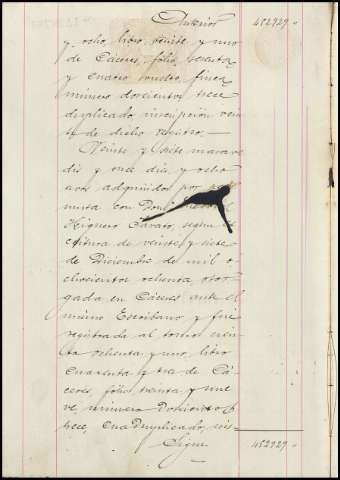 Anterior 452929 "
y ocho, libro veinte y uno
de Cáceres, folio
y cuatro vuelto, finca
número doscientos trece
duplicado inscripción vein
te de dicho registro.—
Veinte y siete marave
dís y once días y ocho
avos adquiridos por per
muta con Don
Higuero Cavato, segun es
critura de veinte y siete
de Diciembre de mil o
chocientos ochenta otor
gada en Cáceres ante el
mismo Escribano y fué
registrada al tomo cien
to ochenta y uno, libro
cuarenta y tres de Cá
ceres, folio treinta y nue
ve, número Doscientos
trece, duplicado, ins-
Sigue 452929 "